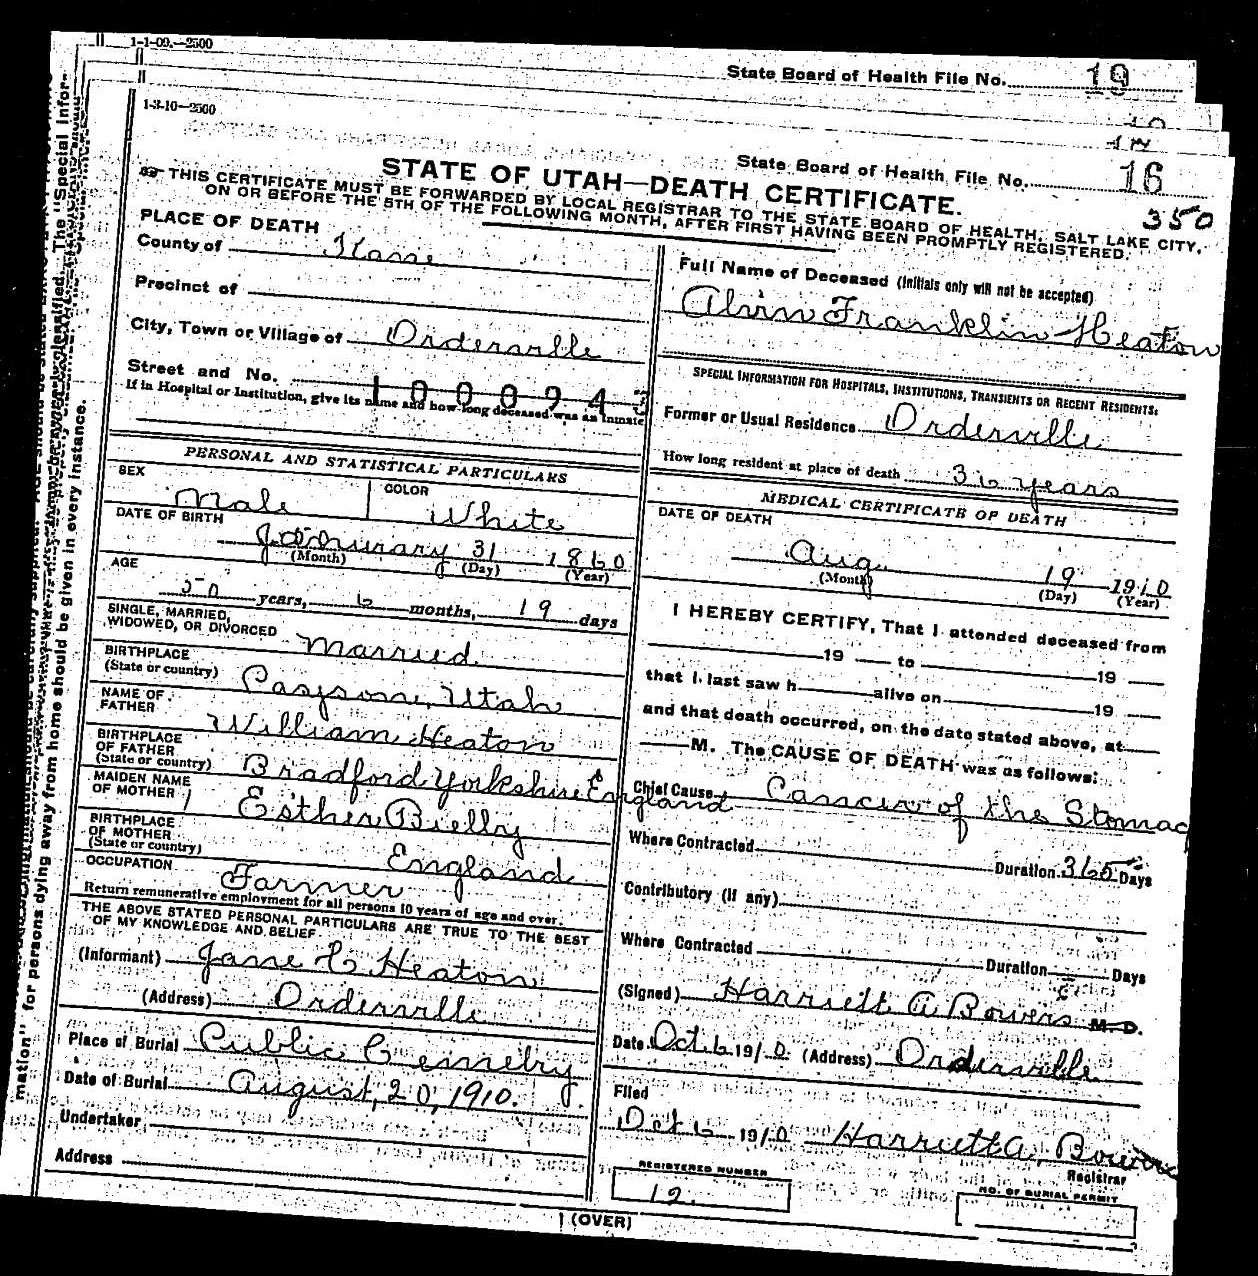 1-1-09.—2500
State Board of Health File No. 19
1-3-10—2500
State Board of Health File No. 16
STATE OF UTAH—DEATH CERTIFICATE.
350
THIS CERTIFICATE MUST BE FORWARDED BY LOCAL REGISTRAR TO THE STATE BOARD OF HEALTH, SALT LAKE CITY,
ON OR BEFORE THE 5TH OF THE FOLLOWING MONTH, AFTER FIRST HAVING BEEN PROMPTLY REGISTERED.
PLACE OF DEATH
County of Kane
Precinct of
City, Town or Village of Orderville
Street and No.
1000943
If in Hospital or Institution, give its name and how long deceased was an inmate
PERSONAL AND STATISTICAL PARTICULARS
SEX Male
COLOR White
DATE OF BIRTH January 31 1860
(Month) (Day) (Year)
AGE 50 years, 6 months, 19 days
SINGLE, MARRIED,
WIDOWED, OR DIVORCED Married
BIRTHPLACE
(State or country) Payson, Utah
NAME OF
FATHER William Heaton
BIRTHPLACE
OF FATHER
(State or country) Bradford Yorkshire England
MAIDEN NAME
OF MOTHER Esther Bielby
BIRTHPLACE
OF MOTHER
(State or country) England
OCCUPATION Farmer
Return remunerative employment for all persons 10 years of age and over.
THE ABOVE STATED PERSONAL PARTICULARS ARE TRUE TO THE BEST
OF MY KNOWLEDGE AND BELIEF
(Informant) Jane C Heaton
(Address) Orderville
Place of Burial Public Cemetry
Date of Burial August, 20, 1910.
Undertaker
Address
Full Name of Deceased (Initials only will not be accepted)
Alvin Franklin Heaton
SPECIAL INFORMATION FOR HOSPITALS, INSTITUTIONS, TRANSIENTS OR RECENT RESIDENTS:
Former or Usual Residence Orderville
How long resident at place of death 36 years
MEDICAL CERTIFICATE OF DEATH
DATE OF DEATH
Aug. 19 1910
(Month) (Day) (Year)
I HEREBY CERTIFY, That I attended deceased from
19 to 19
that I last saw h alive on 19
and that death occurred, on the date stated above, at
M. The CAUSE OF DEATH was as follows:
Chief Cause Cancer of the Stomac
Where Contracted
Duration 365 Days
Contributory (if any)
Where Contracted Duration Days
(Signed) Harriett A Bowers M. D.
Date Oct 6 1910 (Address) Orderville
Filed
Oct 6 1910 Harriett A. Bowers
Registrar
REGISTERED NUMBER
12.
NO. OF BURIAL PERMIT
(OVER)
mation" for persons dying away from home should be given in every instance.